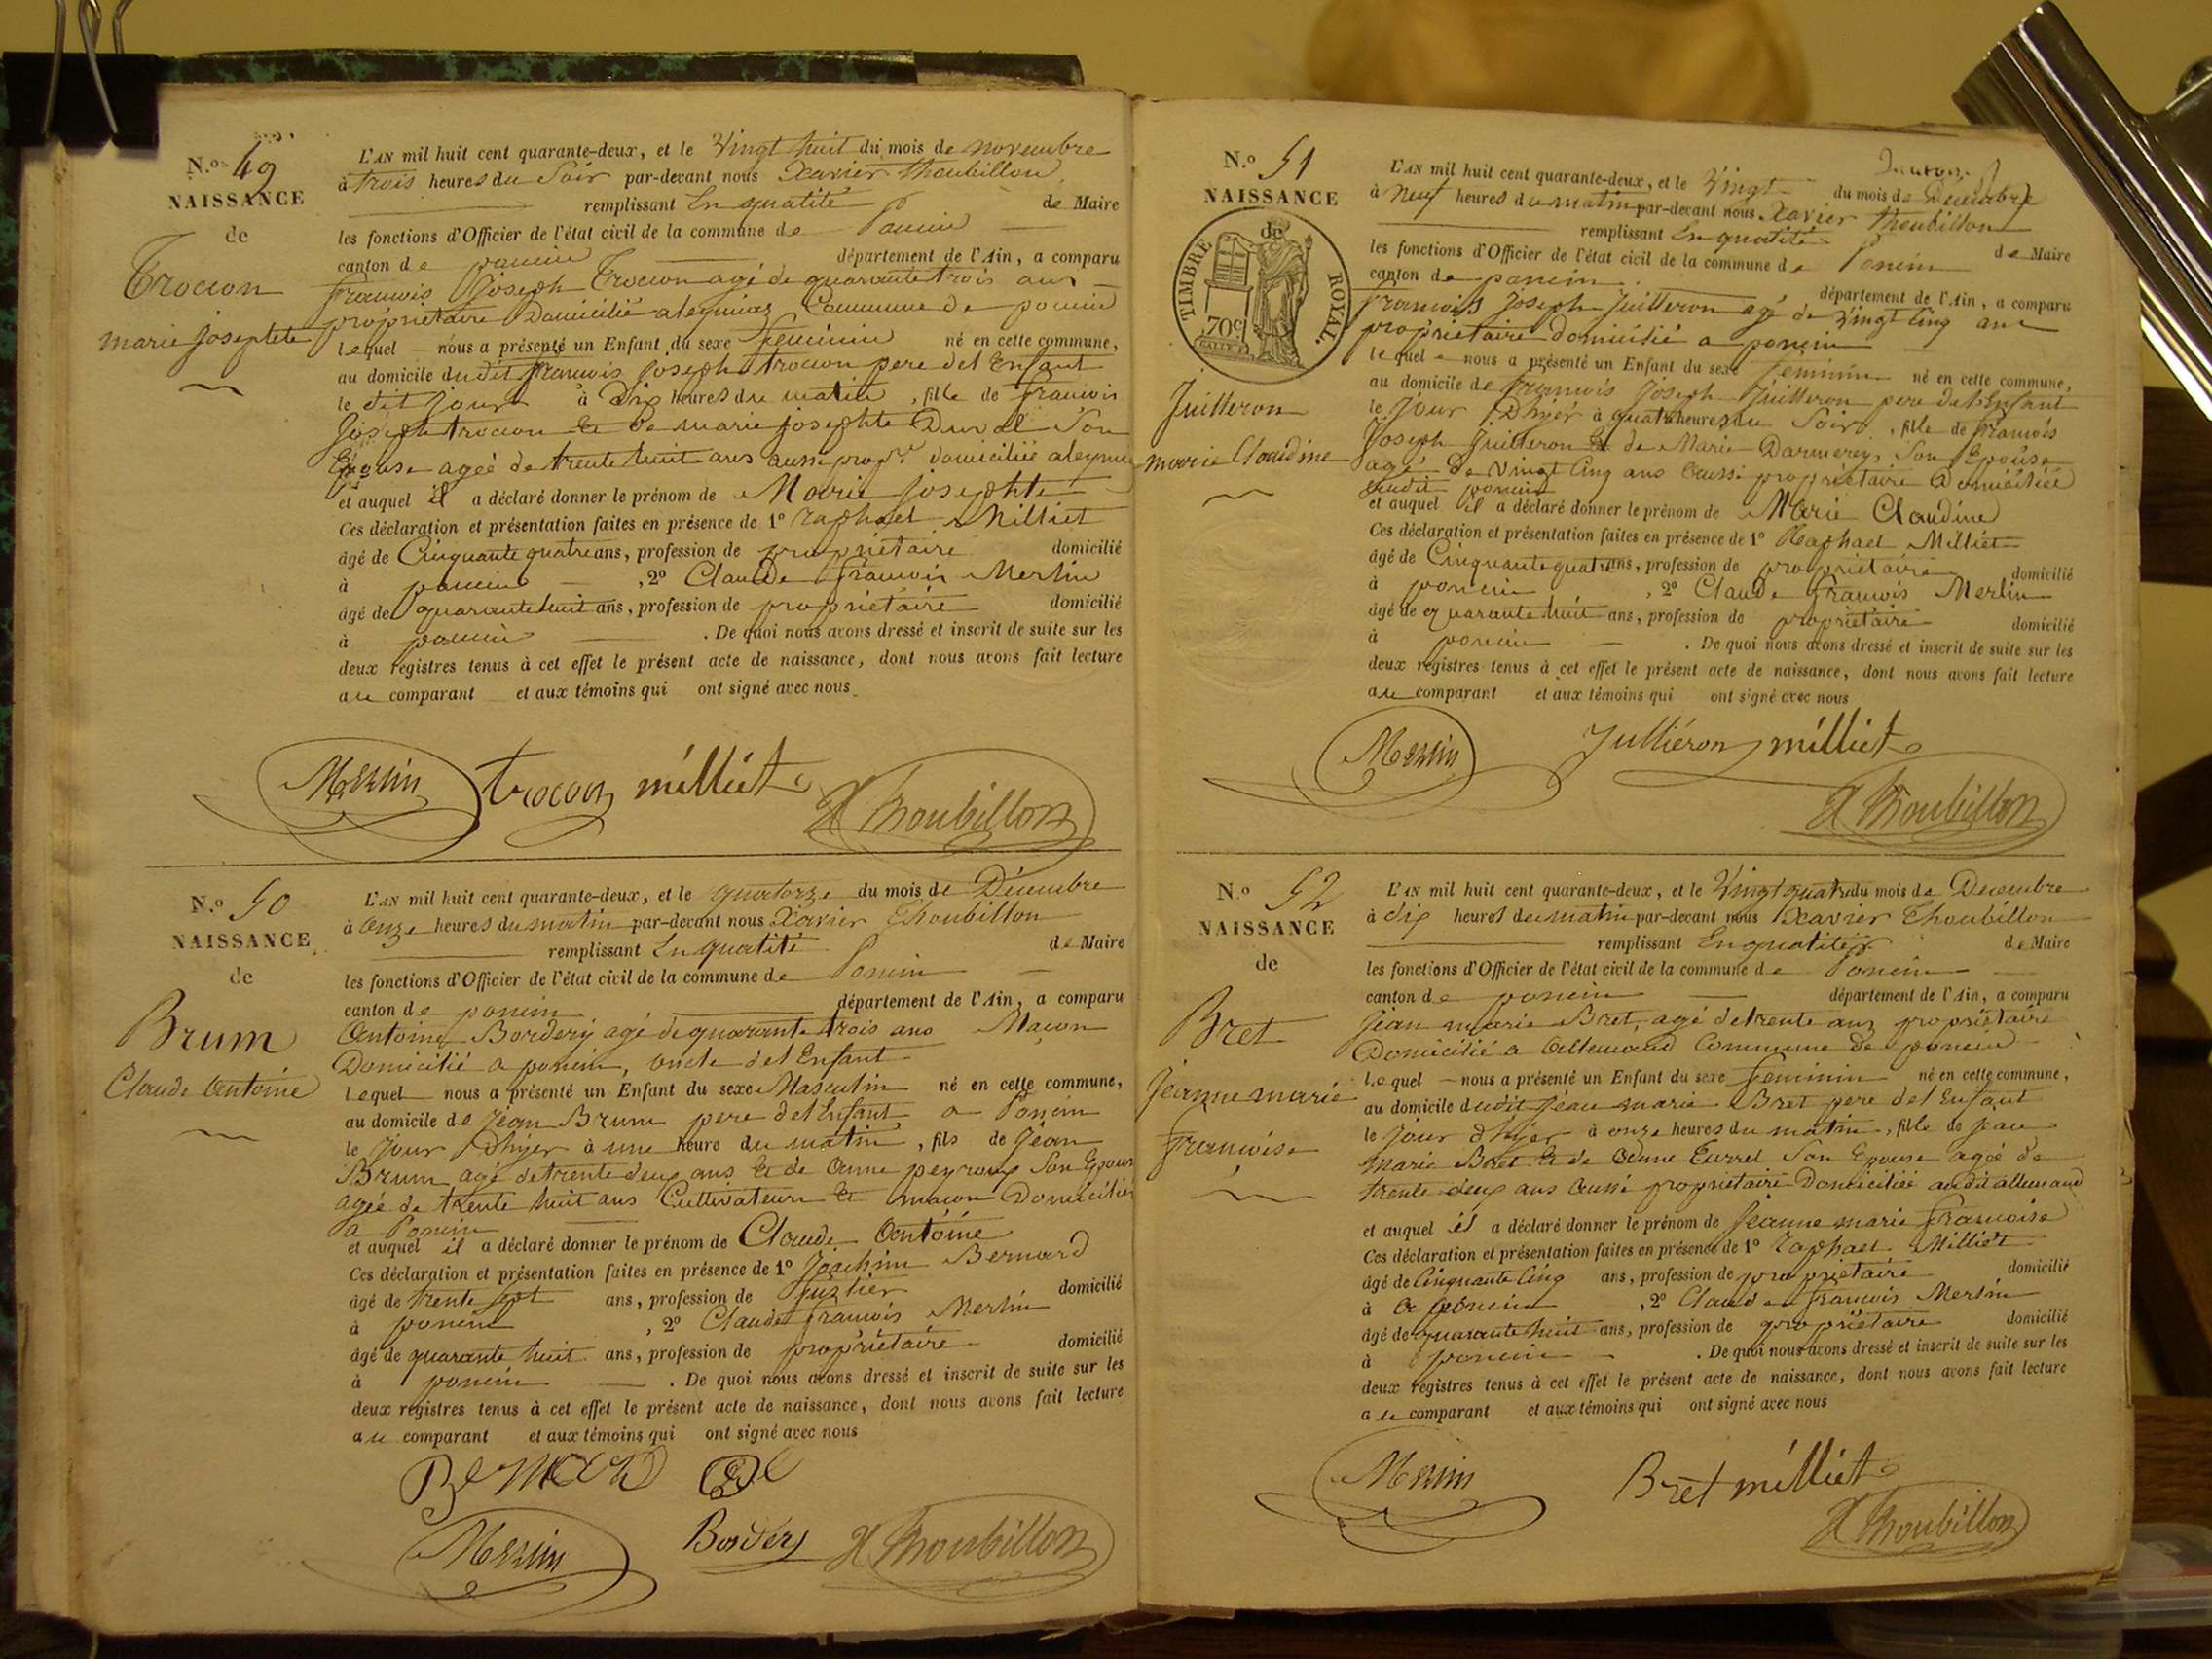 N.º 49
NAISSANCE
de
Trocon
marie josephte
L'AN mil huit cent quarante-deux, et le Vingt huit du mois de novembre
à trois heures du Soir par-devant nous Xavier thoubillon
remplissant En qualité de Maire
les fonctions d'Officier de l'état civil de la commune de Poncin
canton de poncin département de l'Ain, a comparu
francois Joseph Trocon agé de quarante trois ans
propriétaire Domicilié a leymiaz Commune de poncin
lequel nous a présenté un Enfant du sexe feminin né en cette commune,
au domicile dudit francois joseph trocon pere de l Enfant
le dit jour à Dix heures du matin, fille de francois
Joseph trocon Et De marie josephte Duval Son
Epouse agée de trente huit ans aussi propre domiciliée a leymi
et auquel il a déclaré donner le prénom de Marie josephte
Ces déclaration et présentation faites en présence de 1º raphael Milliet
âgé de Cinquante quatre ans, profession de propriétaire domicilié
à poncin, 2º Claude francois Merlin
âgé de quarante huit ans, profession de propriétaire domicilié
à poncin. De quoi nous avons dressé et inscrit de suite sur les
deux registres tenus à cet effet le présent acte de naissance, dont nous avons fait lecture
au comparant et aux témoins qui ont signé avec nous
Merlin trocon milliet
X Thoubillon
N.º 50
NAISSANCE
de
Brum
Claude Antoine
L'AN mil huit cent quarante-deux, et le quatorze du mois de Décembre
à onze heures du matin par-devant nous Xavier Thoubillon
remplissant En qualité de Maire
les fonctions d'Officier de l'état civil de la commune de Poncin
canton de poncin département de l'Ain, a comparu
Antoine Bordery agé de quarante trois ans Maçon
Domicilié a poncin, oncle de l Enfant
lequel nous a présenté un Enfant du sexe Masculin né en cette commune,
au domicile de Jean Brum pere de l Enfant a Poncin
le jour Dhyer à une heure du matin, fils de Jean
Brum agé de trente deux ans Et de Anne peyroux Son Epouse
agée de trente huit ans Cultivateurs Et maçon Domiciliés
a Poncin
et auquel il a déclaré donner le prénom de Claude Antoine
Ces déclaration et présentation faites en présence de 1º Joachim Bernard
âgé de trente sept ans, profession de domicilié
à poncin, 2º Claude francois Merlin
âgé de quarante huit ans, profession de propriétaire domicilié
à poncin. De quoi nous avons dressé et inscrit de suite sur les
deux registres tenus à cet effet le présent acte de naissance, dont nous avons fait lecture
au comparant et aux témoins qui ont signé avec nous
Bernard
Merlin Bordery X Thoubillon
N.º 51
NAISSANCE
de
TIMBRE ROYAL.
70c
Juilleron
marie Claudine
L'AN mil huit cent quarante-deux, et le Vingt du mois de Décembre
à neuf heures du matin par-devant nous Xavier thoubillon
remplissant En qualité de Maire
les fonctions d'Officier de l'état civil de la commune de Poncin
canton de poncin département de l'Ain, a comparu
francois joseph Juilleron agé de vingt Cinq ans
propriétaire domicilié a poncin
lequel nous a présenté un Enfant du sexe feminin né en cette commune,
au domicile de francois joseph Juilleron pere de l Enfant
le jour Dhyer à quatre heures du Soir, fille de francois
Joseph Juilleron Et de Marie Darmerey Son Epouse
agé de Vingt Cinq ans aussi propriétaire Domiciliée
audit poncin
et auquel il a déclaré donner le prénom de Marie Claudine
Ces déclaration et présentation faites en présence de 1º Raphael Milliet
âgé de Cinquante quatre ans, profession de propriétaire domicilié
à poncin, 2º Claude francois Merlin
âgé de quarante huit ans, profession de propriétaire domicilié
à poncin. De quoi nous avons dressé et inscrit de suite sur les
deux registres tenus à cet effet le présent acte de naissance, dont nous avons fait lecture
au comparant et aux témoins qui ont signé avec nous
Merlin Julliéron milliet
X Thoubillon
N.º 52
NAISSANCE
de
Bret
jeanne marie
françoise
L'AN mil huit cent quarante-deux, et le Vingt quatre du mois de Decembre
à dix heures du matin par-devant nous Xavier Thoubillon
remplissant En qualité de Maire
les fonctions d'Officier de l'état civil de la commune de Poncin
canton de poncin département de l'Ain, a comparu
Jean marie Bret, agé de trente ans propriétaire
Domicilié a Allemand Commune de poncin
lequel nous a présenté un Enfant du sexe feminin né en cette commune,
au domicile dudit Jean marie Bret pere de l Enfant
le jour dhyer à onze heures du matin, fille de jean
marie Bret Et de Anne Eurrel Son Epouse agée de
trente deux ans aussi propriétaire Domiciliée audit allemand
et auquel il a déclaré donner le prénom de Jeanne marie francoise
Ces déclaration et présentation faites en présence de 1º raphael Milliet
âgé de Cinquante Cinq ans, profession de propriétaire domicilié
à a poncin, 2º Claude francois Merlin
âgé de quarante huit ans, profession de propriétaire domicilié
à poncin. De quoi nous avons dressé et inscrit de suite sur les
deux registres tenus à cet effet le présent acte de naissance, dont nous avons fait lecture
au comparant et aux témoins qui ont signé avec nous
Merlin Bret milliet
X Thoubillon